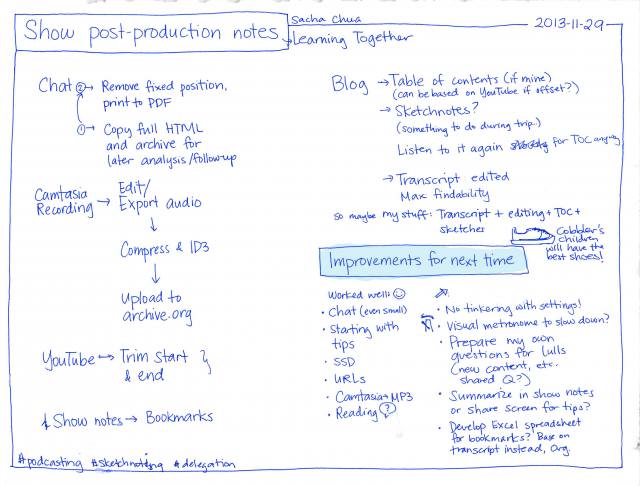 Show post-production notes
Sacha Chua
Learning Together
2013-11-29
Chat ② → Remove fixed position,
print to PDF
① → Copy full HTML
and archive for
later analysis/followup
Camtasia
Recording → Edit/
Export audio
Compress & ID3
Upload to
archive.org
YouTube → Trim start
& end
Show notes → Bookmarks
#podcasting #sketchnoting #delegation
Blog → Table of contents (if mine)
(can be based on YouTube if offset?)
→ Sketchnotes?
(something to do during trip...)
Listen to it again for TOC anyway
→ Transcript edited
Max findability
so maybe my stuff: Transcript + editing + TOC +
sketches
Cobbler's
children
will have the
best shoes!
Improvements for next time
Worked well: ☺
• Chat (even small)
• Starting with
tips
• SSD
• URLs
• Camtasia → MP3
• Reading ?
• No tinkering with settings!
• Visual metronome to slow down?
• Prepare my own
questions for lulls
(new content, etc.
shared Q?)
• Summarize in show notes
or share screen for tips?
• Develop Excel spreadsheet
for bookmarks? Base on
transcript instead, Org.